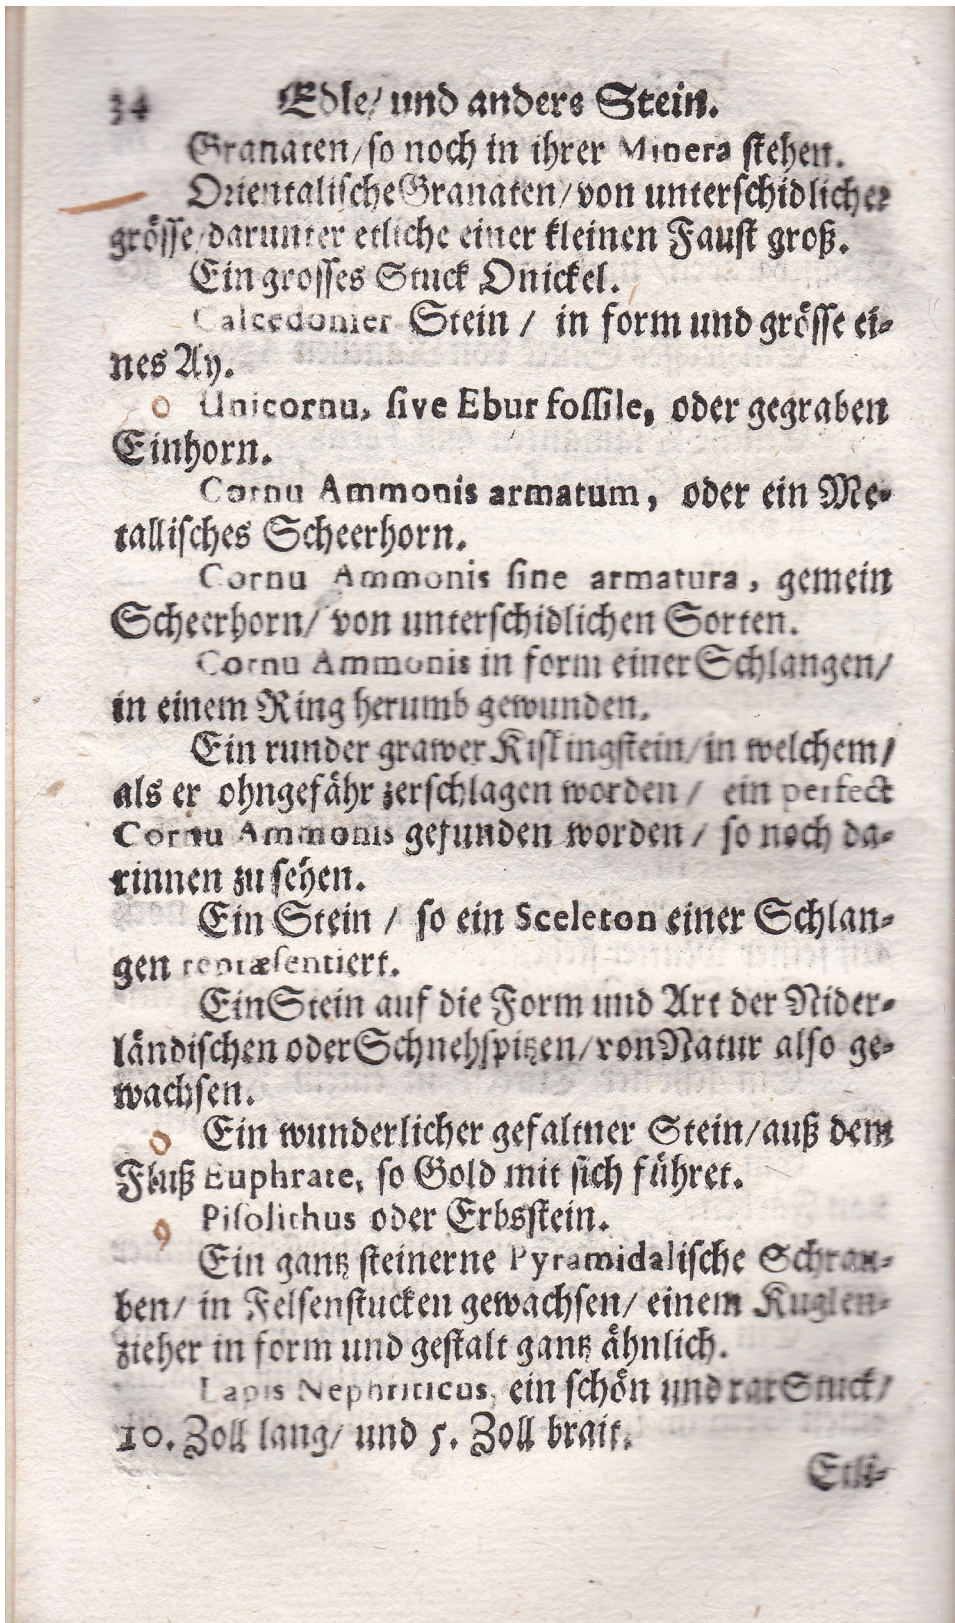 34 Edle/ und andere Stein.
Granaten/ so noch in ihrer Minera stehen.
Orientalische Granaten/ von unterschidlicher
grösse/ darunter etliche einer kleinen Faust groß.
Ein grosses Stuck Onickel.
Calcedonier Stein / in form und grösse ei-
nes Ay.
Unicornu, sive Ebur fossile, oder gegraben
Einhorn.
Cornu Ammonis armatum, oder ein Me-
tallisches Scheerhorn.
Cornu Ammonis sine armatura, gemein
Scheerhorn/ von unterschidlichen Sorten.
Cornu Ammonis in form einer Schlangen/
in einem Ring herumb gewunden.
Ein runder grawer Kislingstein/ in welchem/
als er ohngefähr zerschlagen worden / ein perfect
Cornu Ammonis gefunden worden / so noch da-
rinnen zu sehen.
Ein Stein / so ein Sceleton einer Schlan-
gen repræsentiert.
Ein Stein auf die Form und Art der Nider-
ländischen oder Schnehspitzen/ von Natur also ge-
wachsen.
Ein wunderlicher gefaltner Stein/ auß dem
Fluß Euphrate, so Gold mit sich führet.
Pisolithus oder Erbsstein.
Ein gantz steinerne Pyramidalische Schrau-
ben/ in Felsenstucken gewachsen/ einem Kuglen-
zieher in form und gestalt gantz ähnlich.
Lapis Nephriticus, ein schön und rar Stuck/
10. Zoll lang/ und 5. Zoll brait.
Etli-